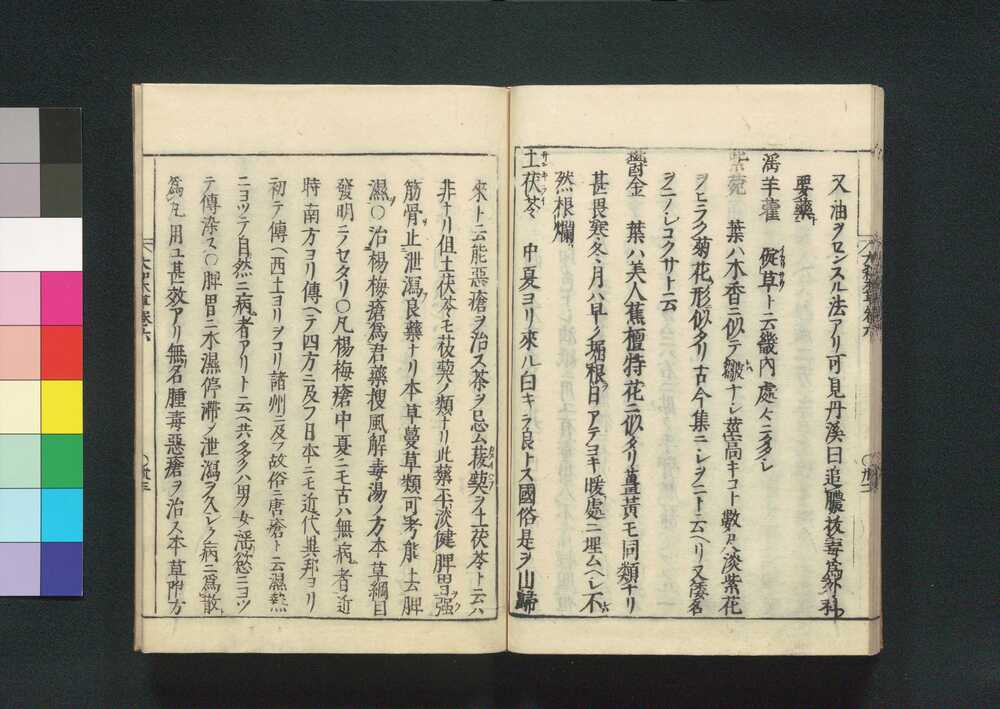 又油ヲロンスル法アリ可見丹溪曰追膿拔毒爲外科
要藥
淫羊藿 碇草ト云畿内處々ニ多シ
紫菀 葉ハ木香ニ似テ皺ナシ莖高キコト數尺淡紫花
ヲヒラク菊花ノ形似タリ古今集ニシヲニト云ヘリ又倭名
ヲニノシコクサト云
鬱金 葉ハ美人蕉檀特花ニ似タリ薑黄モ同類ナリ
甚畏寒冬月ハ早ク堀根日アテヨキ暖處ニ埋ムヘシ不
然根爛
土茯苓 中夏ヨリ來ル白キヲ良トス國俗是ヲ山歸
來ト云能惡瘡ヲ治ス茶ヲ忌ム菝葜ヲ土茯苓ト云ハ
非ナリ但土茯苓モ菝葜ノ類ナリ此藥平淡健脾胃强
筋骨止泄瀉良藥ナリ本草蔓草類可考能去脾
濕○治楊梅瘡爲君藥搜風解毒湯ノ方本草綱目
發明ニノセタリ○凡楊梅瘡中夏ニモ古ハ無病者近
時南方ヨリ傳ヘテ四方ニ及フ日本ニモ近代異邦ヨリ
初テ傳ヘ西土ヨリヲコリ諸州ニ及フ故俗ニ唐瘡ト云濕熱
ニヨツテ自然ニ病者アリト云ヘ共多クハ男女淫慾ニヨツ
テ傳染ス○脾胃ニ水濕停滯ノ泄瀉久シク病ニ爲散
爲丸用ユ甚效アリ無名腫毒惡瘡ヲ治ス本草附方